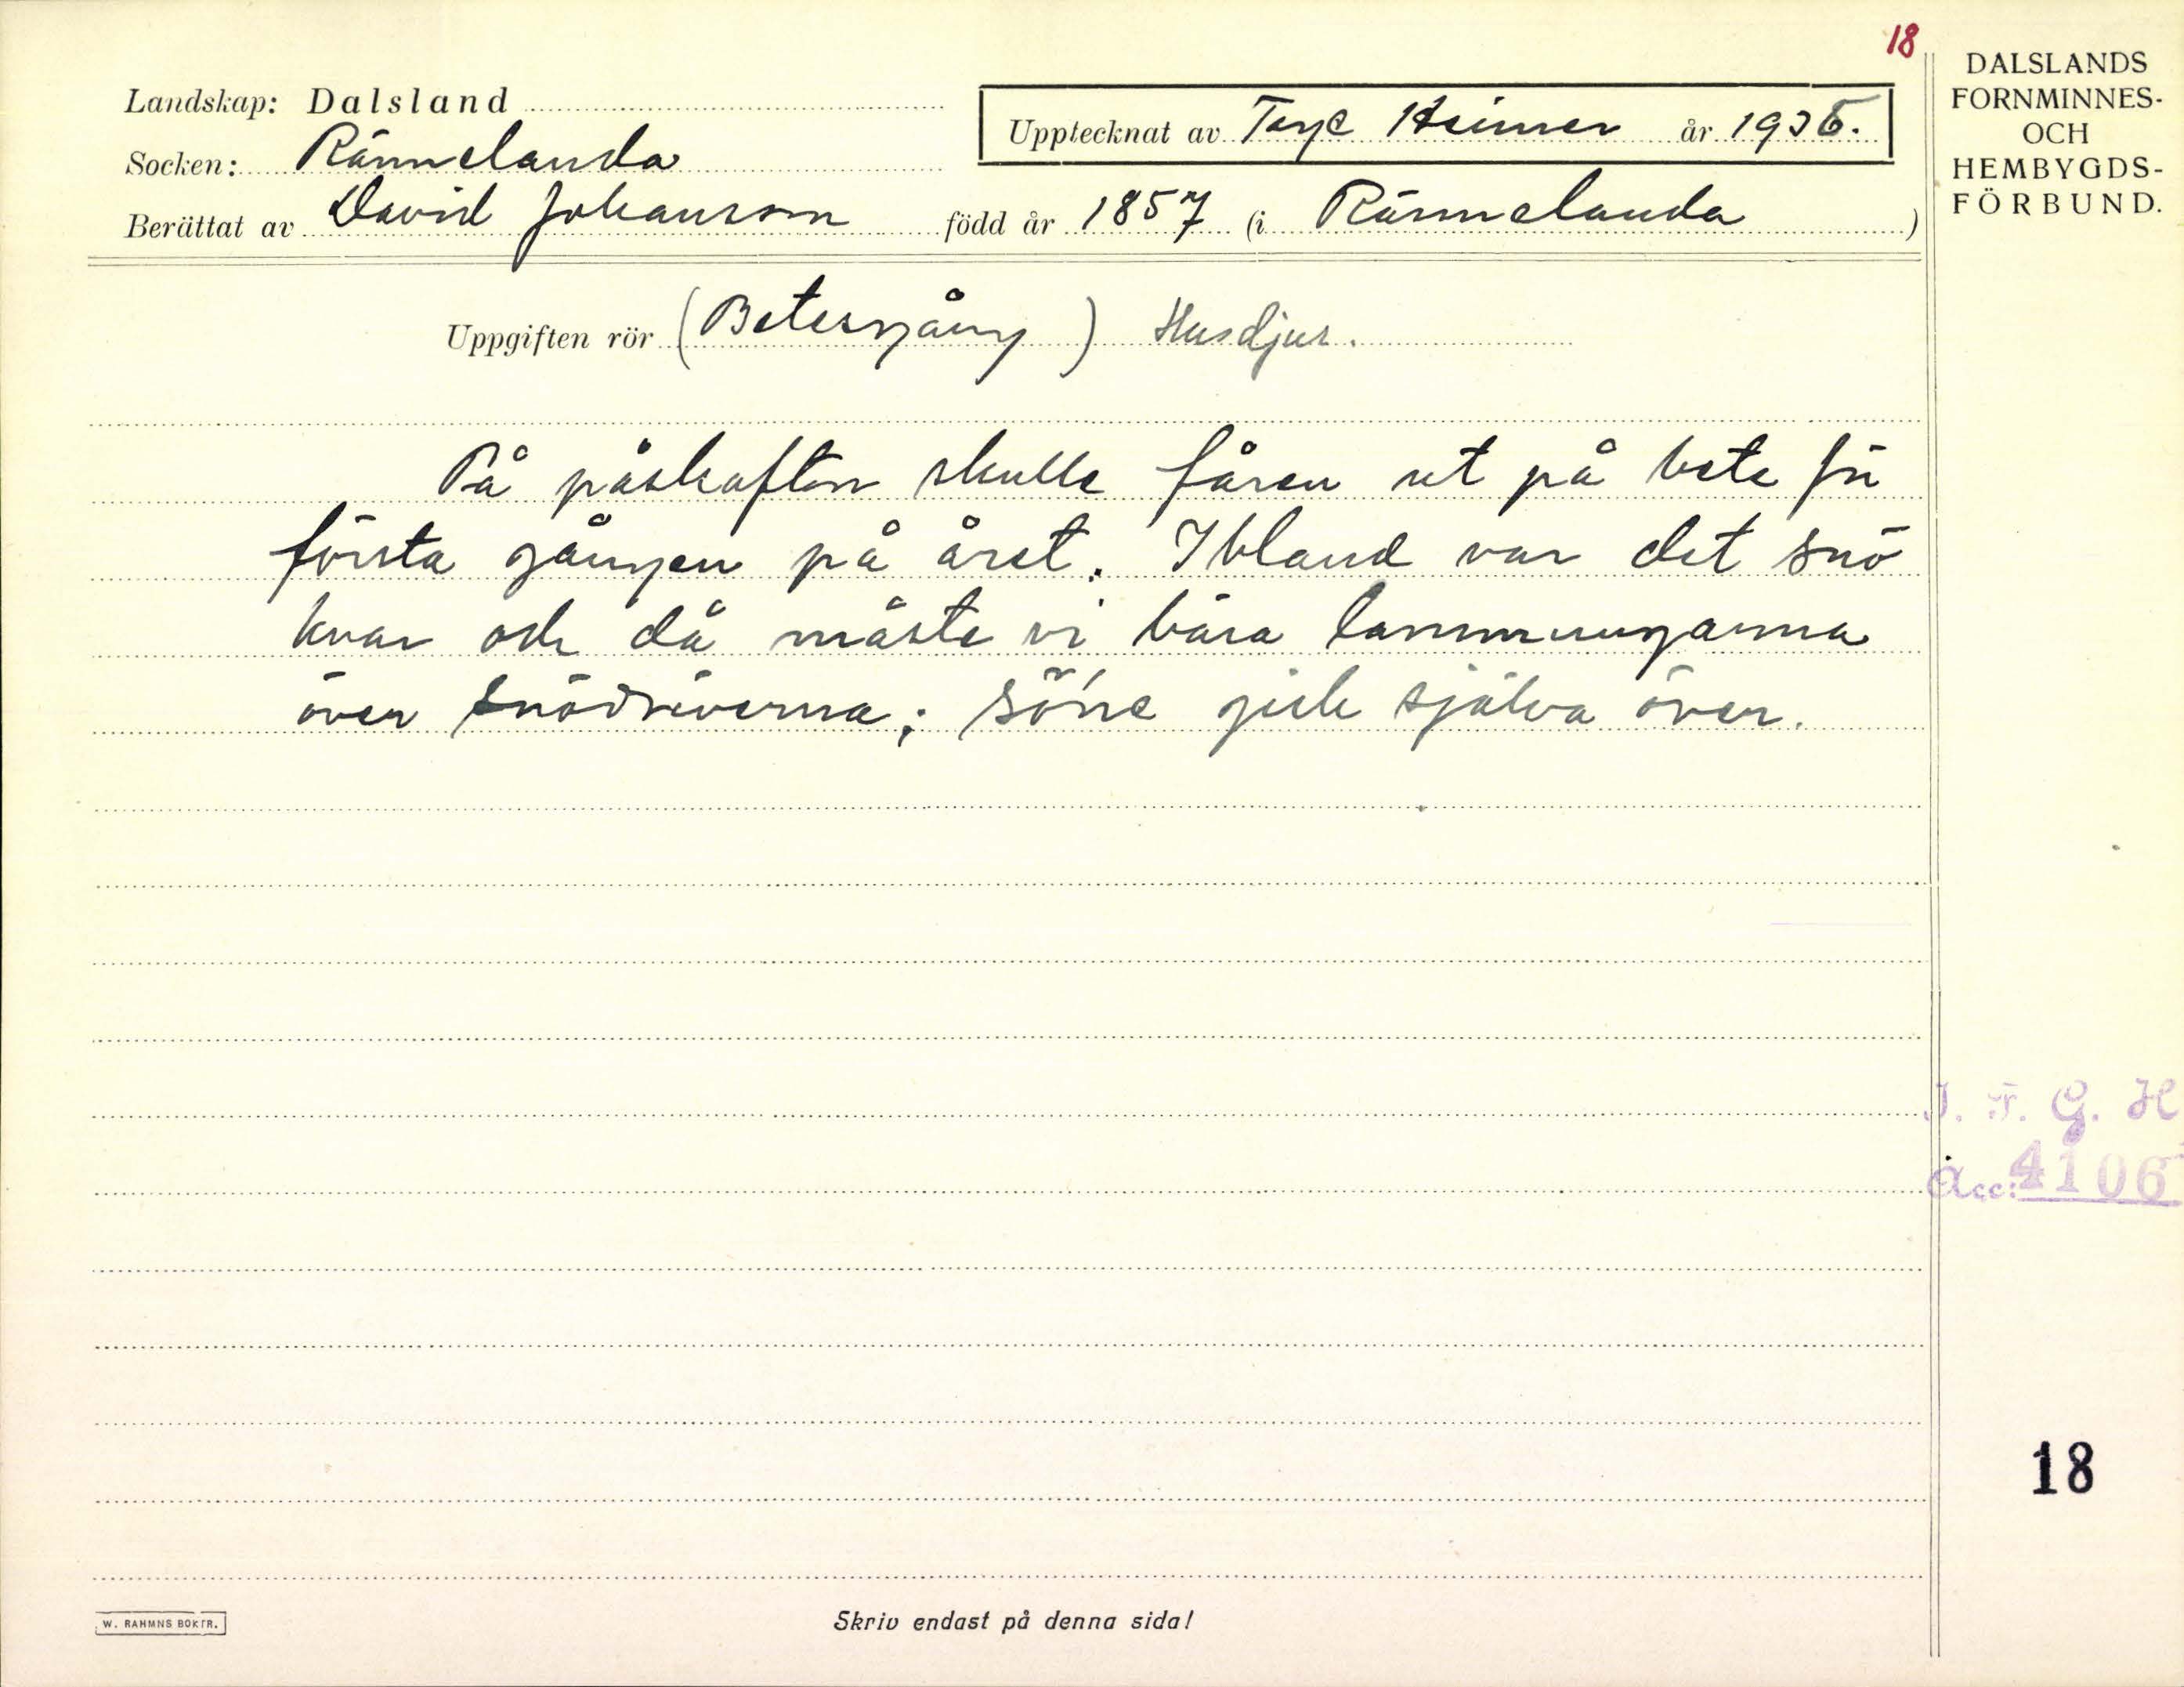 18
DALSLANDS
FORNMINNES-
OCH
HEMBYGDS-
FÖRBUND.
Landskap: Dalsland
Upptecknat av Tage Heimer år 1936.
Socken: Rännelanda
Berättat av David Johansson född år 1857 (i Rännelanda)
Uppgiften rör (Betesgång) Husdjur.
På påskafton skulle fåren ut på bete för
första gången på året. Ibland var det snö
kvar och då måste vi bära lammungarna
över snödrivorna; söne gick själva över.
I. F. G. H
Acc: 4106
18
W. RAHMNS BOKTR.
Skriv endast på denna sida!